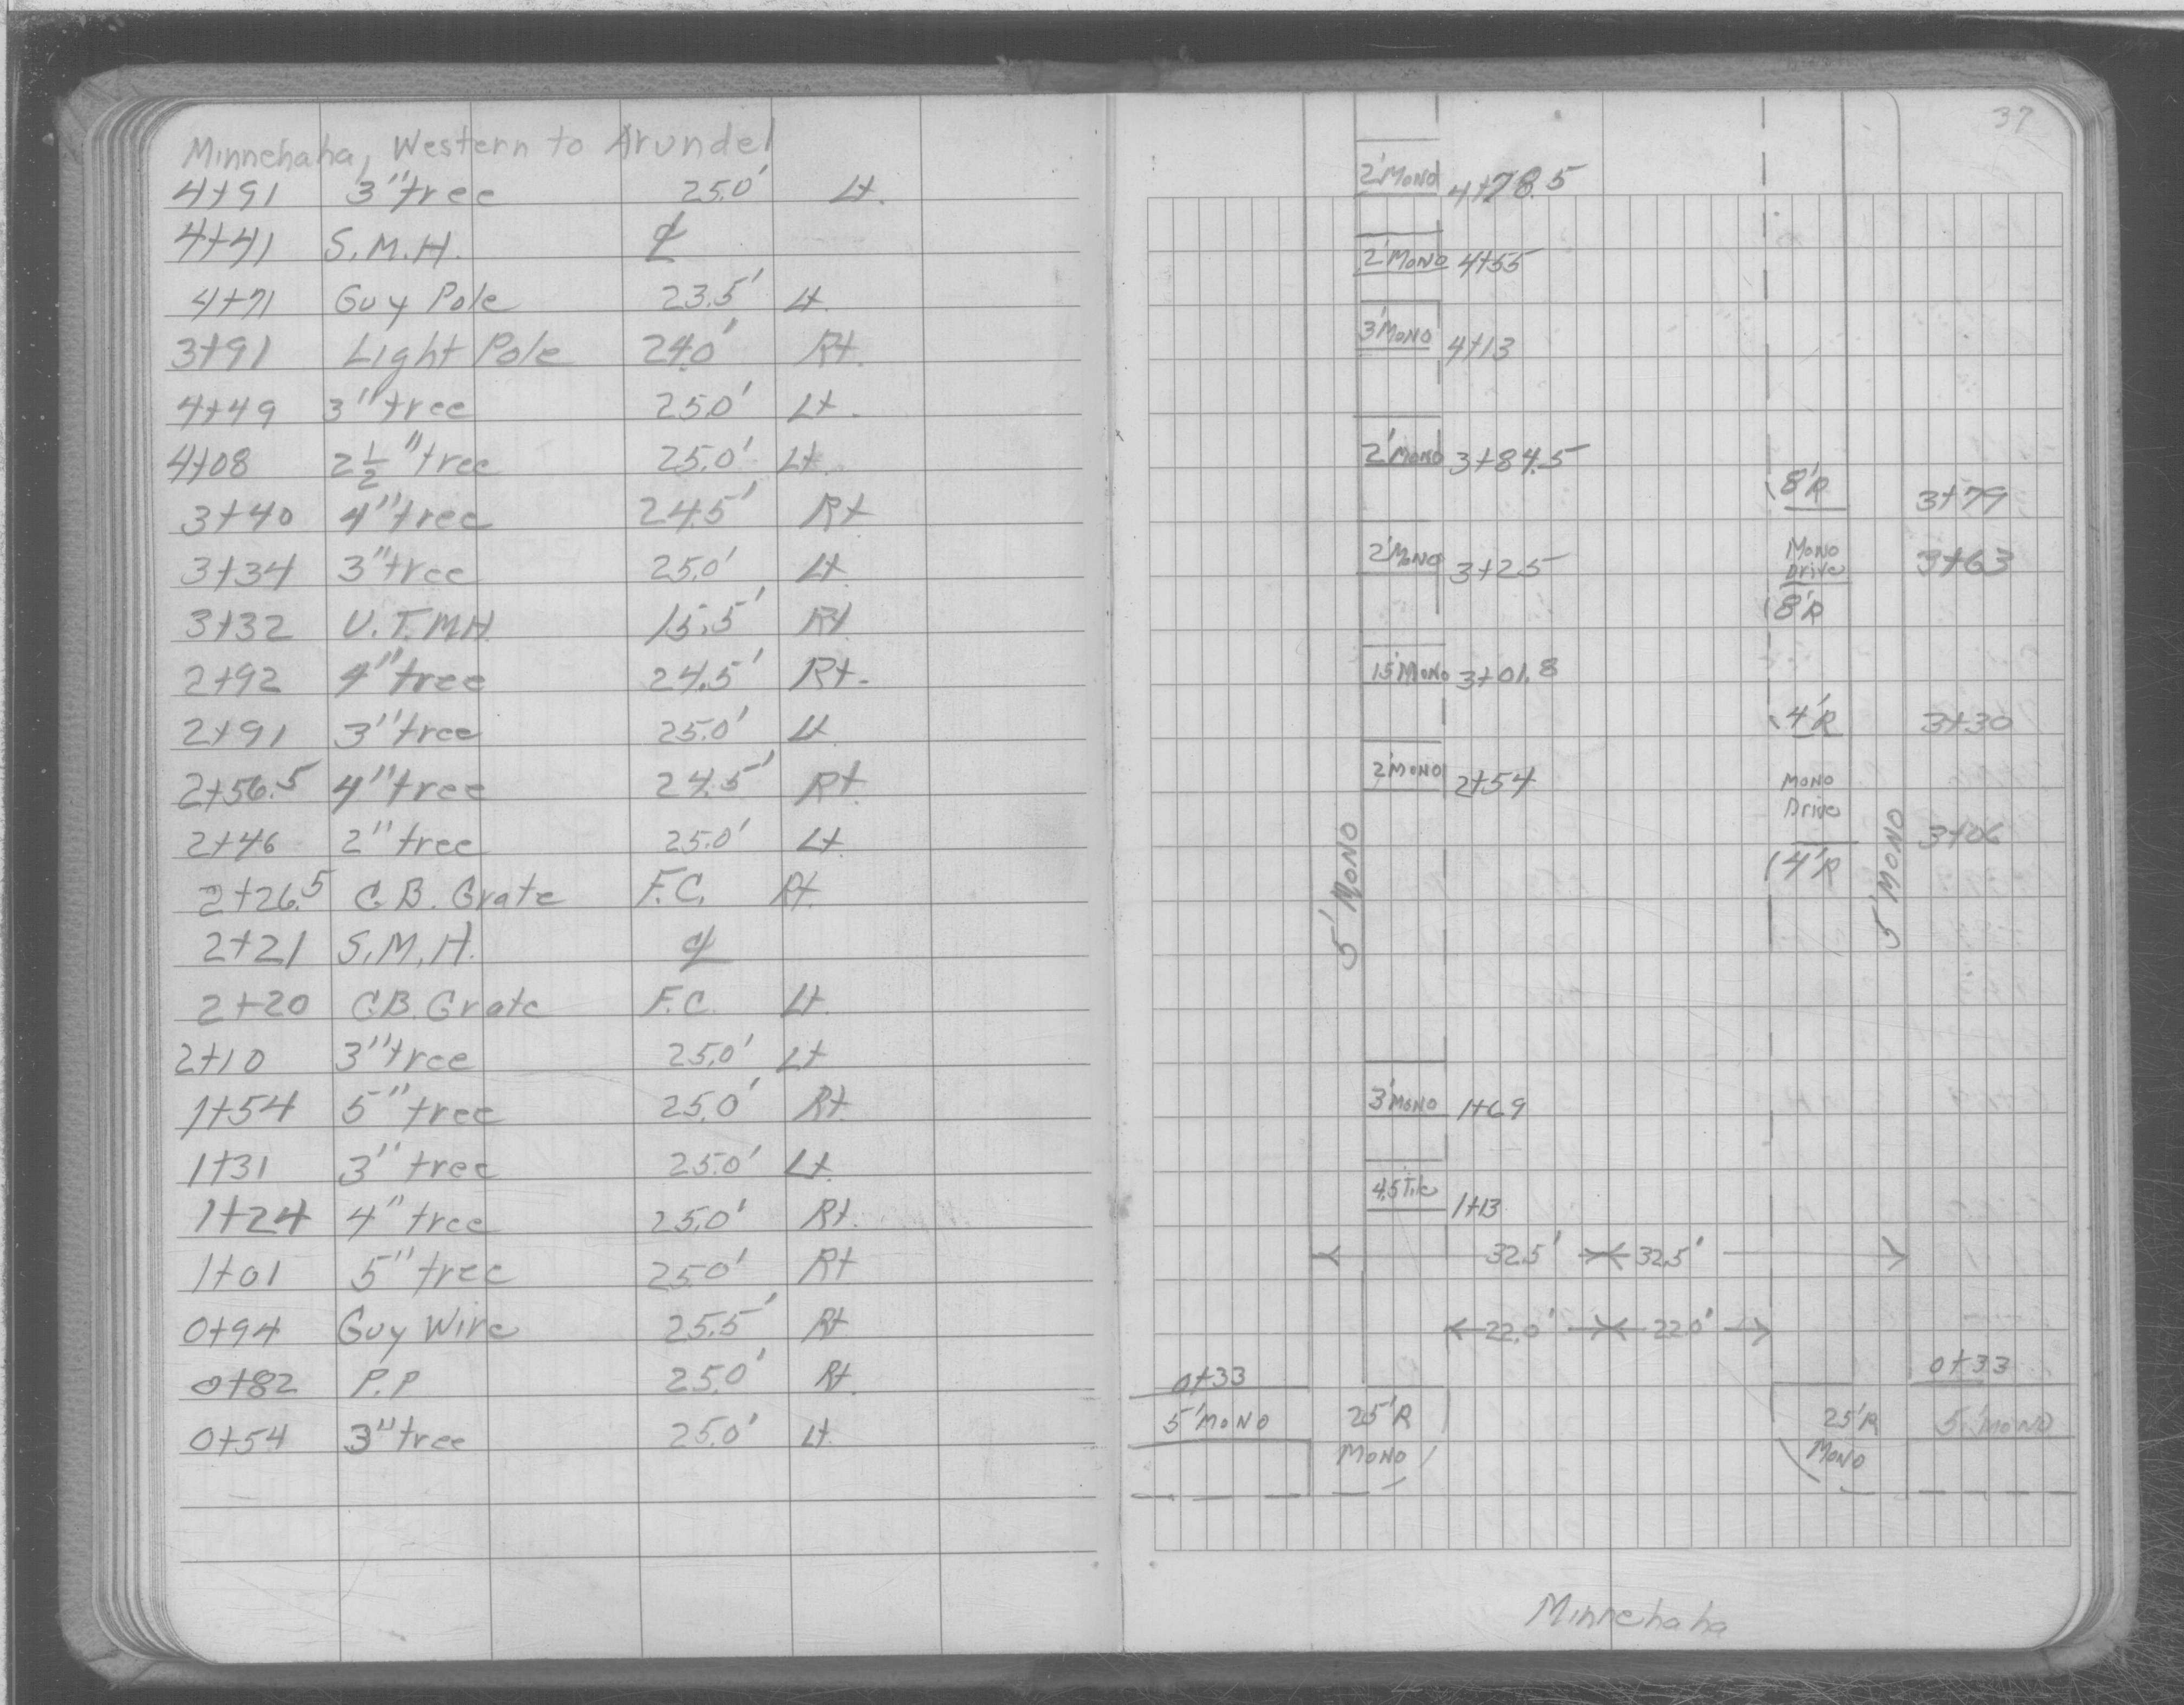 Minnehaha, Western to Arundel
4+91 3" tree 25.0' Lt.
4+41 S.M.H. ℄
4+71 Guy Pole 23.5' Lt.
3+91 Light Pole 24.0' Rt.
4+49 3" tree 25.0' Lt.
4+08 2 1/2" tree 25.0' Lt.
3+40 4" tree 24.5' Rt
3+34 3" tree 25.0' Lt.
3+32 U.T.M.H. 15.5' Rt.
2+92 4" tree 24.5' Rt.
2+91 3" tree 25.0' Lt
2+56.5 4" tree 24.5' Rt.
2+46 2" tree 25.0' Lt.
2+26.5 C.B. Grate F.C. Rt.
2+21 S.M.H. ℄
2+20 C.B. Grate F.C. Lt.
2+10 3" tree 25.0' Lt
1+54 5" tree 25.0' Rt.
1+31 3" tree 25.0' Lt.
1+24 4" tree 25.0' Rt.
1+01 5" tree 25.0' Rt
0+94 Guy Wire 25.5' Rt
0+82 P.P 25.0' Rt.
0+54 3" tree 25.0' Lt.
37
2'MONO 4+78.5
2'MONO 4+55
3'MONO 4+13
2'MONO 3+84.5
8'R 3+79
2'MONO 3+25
MONO Drive 3+63
8'R
15'MONO 3+01.8
4'R 3+30
2'MONO 2+54
MONO
Drive
3+06
4'R
5'MONO
5'MONO
3'MONO 1+69
4.5 Tile 1+13
32.5' 32.5'
22.0' 22.0'
0+33 0+33
5'MONO 25'R 25'R 5'MONO
MONO MONO
Minnehaha